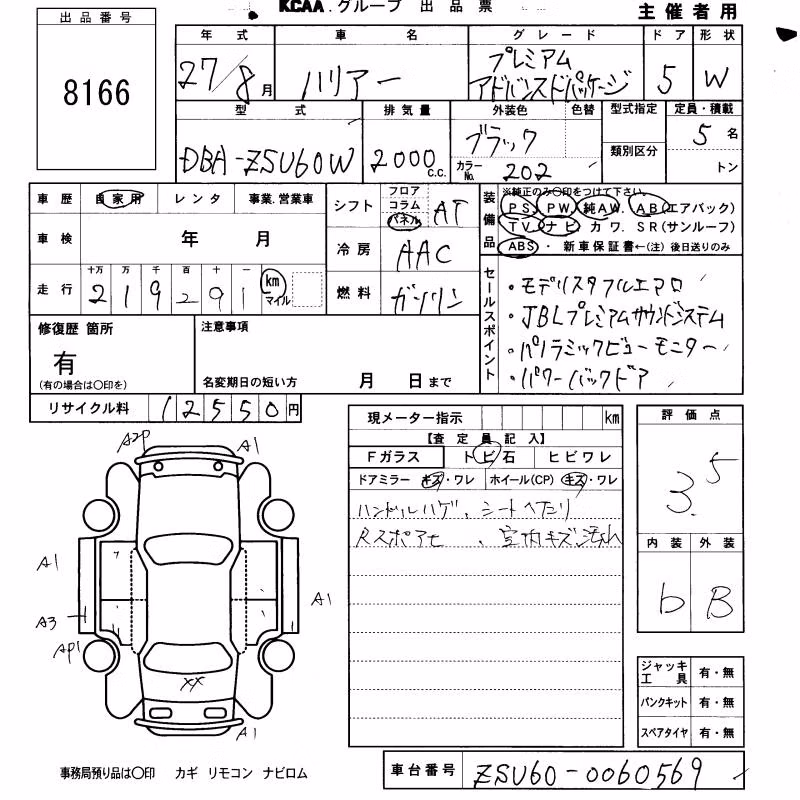 KCAA.グループ 出品票
主催者用
出品番号
8166
年式 車名 グレード ドア 形状
27/8月 ハリアー プレミアム アドバンスドパッケージ 5 W
型式 排気量 外装色 色替 型式指定 定員・積載
DBA-ZSU60W 2000c.c. ブラック 5名
カラーNo. 202 類別区分 トン
車歴 自家用 レンタ 事業.営業車
車検 年 月
走行 十万 万 千 百 十 一
219291 km マイル
シフト フロア コラム パネル AT
冷房 AAC
燃料 ガソリン
装備品 ※純正のみ○印をつけて下さい。
PS. PW. 純AW. AB(エアバック)
TV ナビ カワ. SR(サンルーフ)
ABS・ 新車保証書←(注)後日送りのみ
セールスポイント
・モデリスタフルエアロ
・JBLプレミアムサウンドシステム
・パノラミックビューモニター
・パワーバックドア
修復歴 箇所
有
(有の場合は○印を)
注意事項
名変期日の短い方 月 日まで
リサイクル料 12550円
現メーター指示 km
【査定員記入】
Fガラス トビ石 ヒビワレ
ドアミラー キズ・ワレ ホイール(CP) キズ・ワレ
ハンドルハゲ、シートヘたり
Rスポアセ 、室内キズ汚れ
評価点
3.5
内装 外装
b B
A2P A1
A1
A3 A1
AP1
XX
A1
ジャッキ工具 有・無
パンクキット 有・無
スペアタイヤ 有・無
事務局預り品は○印 カギ リモコン ナビロム
車台番号 ZSU60-0060569